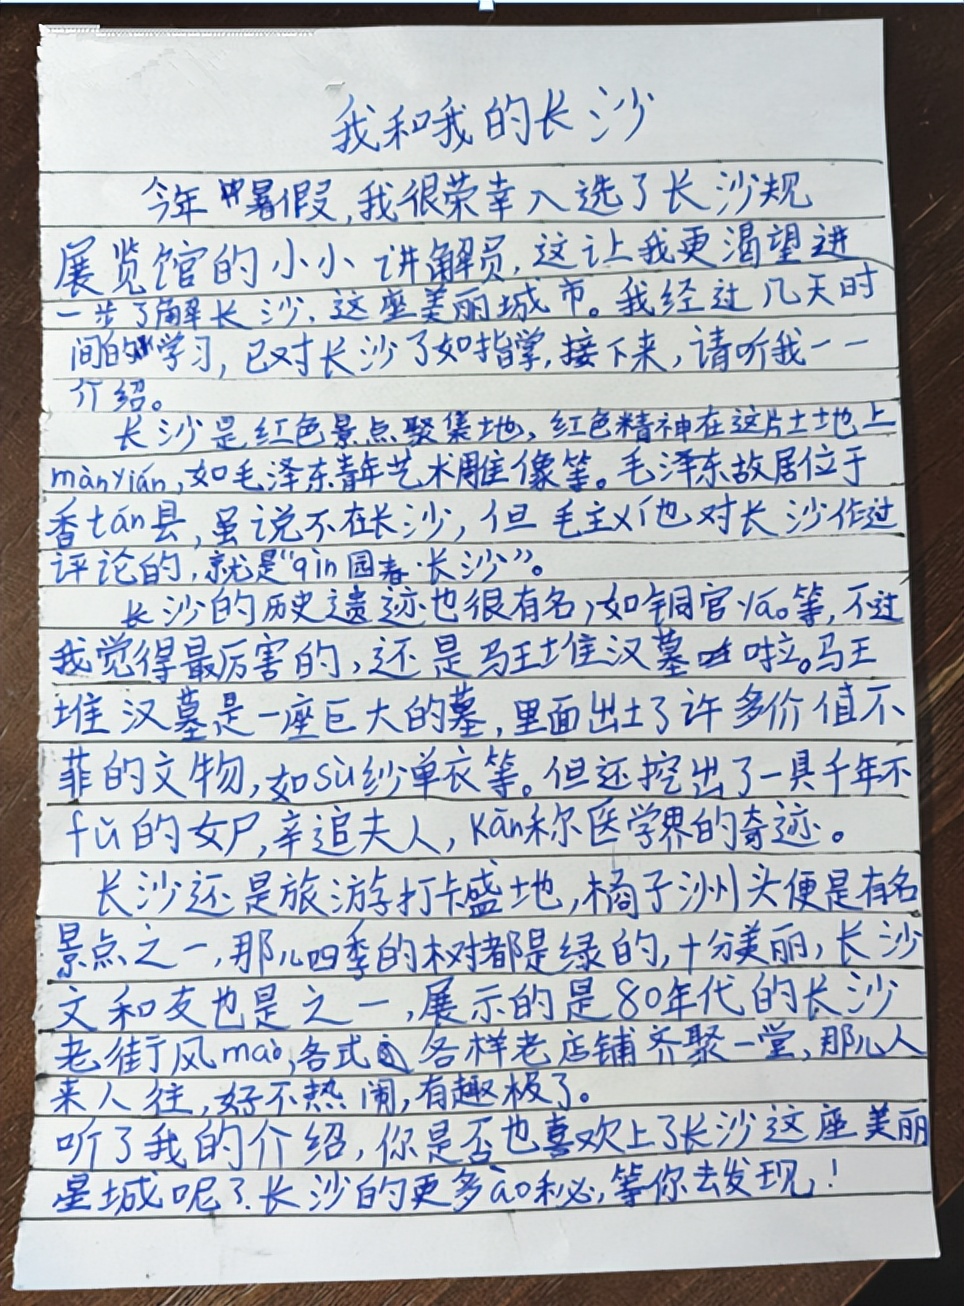 我和我的长沙
今年暑假,我很荣幸入选了长沙规
展览馆的小小讲解员,这让我更渴望进
一步了解长沙、这座美丽城市。我经过几天时
间的学习,已对长沙了如指掌,接下来,请听我一一
介绍。
长沙是红色景点聚集地,红色精神在这片土地上
mànyián,如毛泽东青年艺术雕像等。毛泽东故居位于
香tán县,虽说不在长沙,但毛主xí也对长沙作过
评论的,就是“qin园春·长沙”。
长沙的历史遗迹也很有名,如铜官yáo等,不过
我觉得最厉害的,还是马王堆汉墓啦。马王
堆汉墓是一座巨大的墓,里面出土了许多价值不
菲的文物,如sù纱单衣等。但还挖出了一具千年不
fǔ的女尸,辛追夫人,kān称医学界的奇迹。
长沙还是旅游打卡盛地,橘子洲头便是有名
景点之一,那儿四季的树都是绿的,十分美丽,长沙
文和友也是之一,展示的是80年代的长沙
老街风mào,各式各样老店铺齐聚一堂,那儿人
来人往,好不热闹,有趣极了。
听了我的介绍,你是否也喜欢上了长沙这座美丽
星城呢?长沙的更多ào秘,等你去发现!